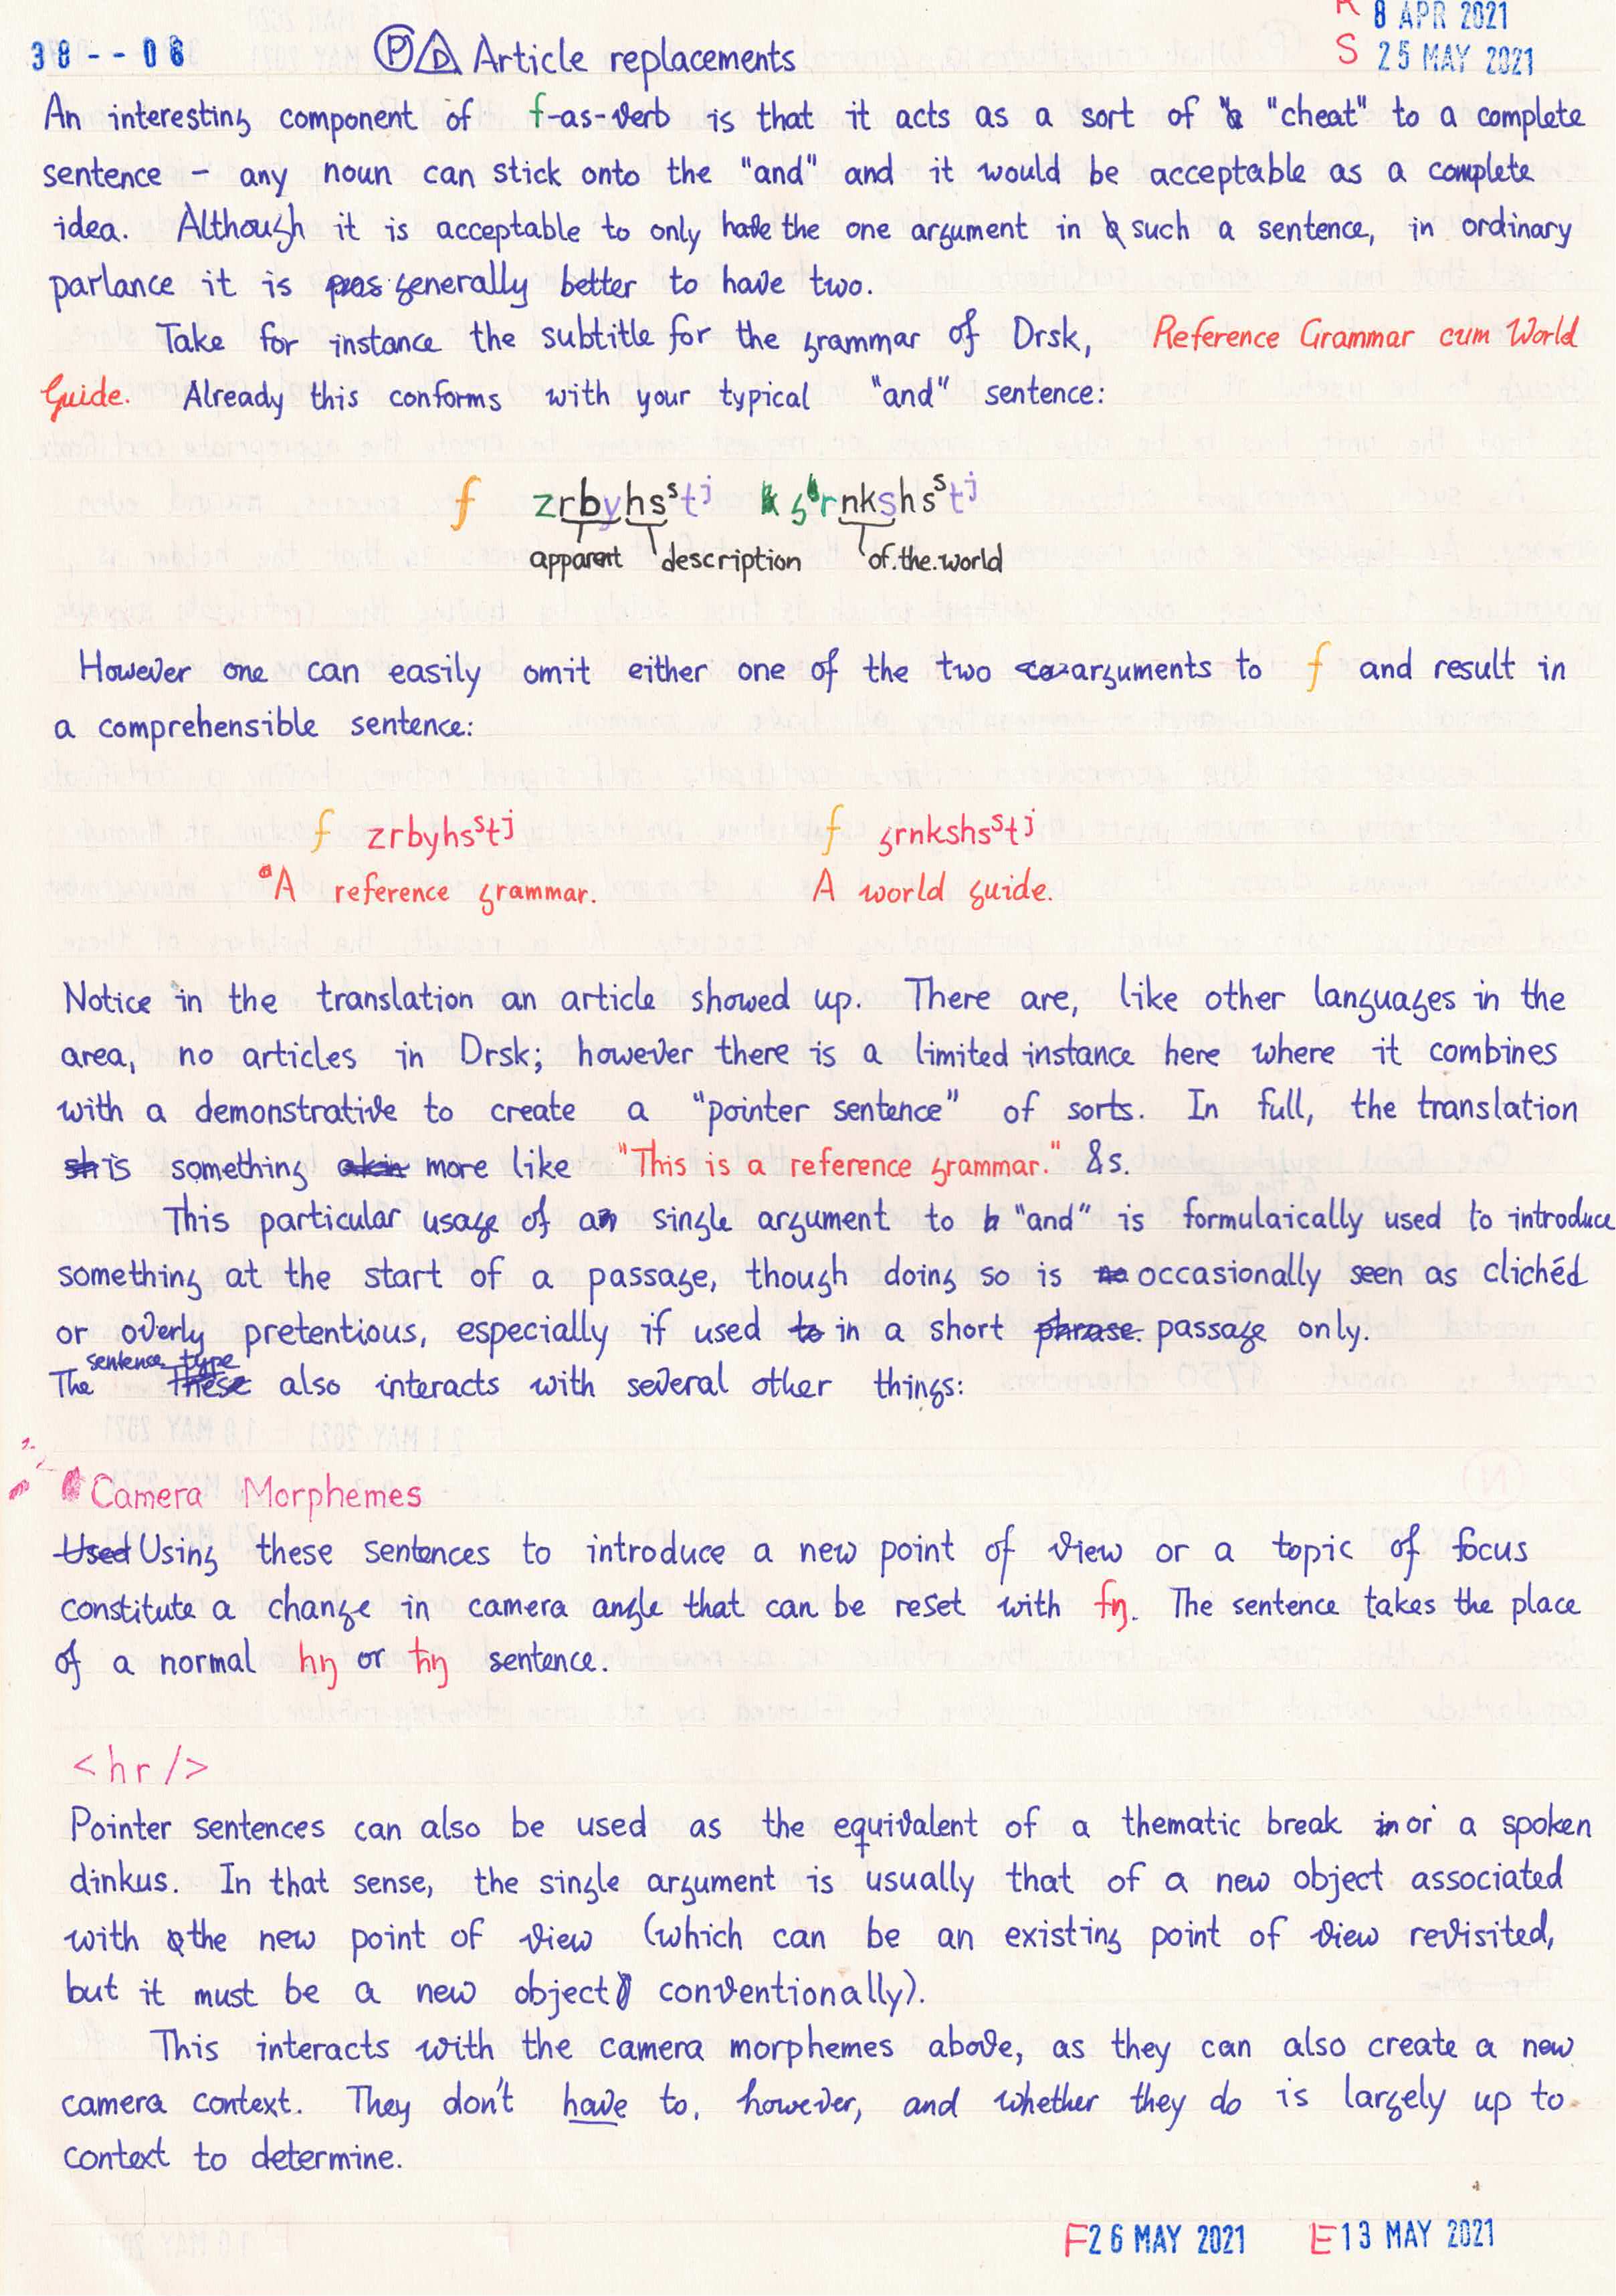 38--06
Ⓟ Article replacements
R 8 APR 2021
S 25 MAY 2021
An interesting component of f-as-verb is that it acts as a sort of "cheat" to a complete
sentence – any noun can stick onto the "and" and it would be acceptable as a complete
idea. Although it is acceptable to only have the one argument in such a sentence, in ordinary
parlance it is generally better to have two.
Take for instance the subtitle for the grammar of Drsk, Reference Grammar cum World
Guide. Already this conforms with your typical "and" sentence:
f zrbyhsˢtʲ grnkshsˢtʲ
apparent description of.the.world
However one can easily omit either one of the two arguments to f and result in
a comprehensible sentence:
f zrbyhsˢtʲ f grnkshsˢtʲ
A reference grammar. A world guide.
Notice in the translation an article showed up. There are, like other languages in the
area, no articles in Drsk; however there is a limited instance here where it combines
with a demonstrative to create a "pointer sentence" of sorts. In full, the translation
is something more like "This is a reference grammar." &s.
This particular usage of a single argument to "and" is formulaically used to introduce
something at the start of a passage, though doing so is occasionally seen as clichéd
or overly pretentious, especially if used in a short passage only.
The sentence type also interacts with several other things:
Camera Morphemes
Using these sentences to introduce a new point of view or a topic of focus
constitute a change in camera angle that can be reset with fŋ. The sentence takes the place
of a normal hŋ or ħŋ sentence.
<hr/>
Pointer sentences can also be used as the equivalent of a thematic break or a spoken
dinkus. In that sense, the single argument is usually that of a new object associated
with the new point of view (which can be an existing point of view revisited,
but it must be a new object conventionally).
This interacts with the camera morphemes above, as they can also create a new
camera context. They don't have to, however, and whether they do is largely up to
context to determine.
F26 MAY 2021 E13 MAY 2021